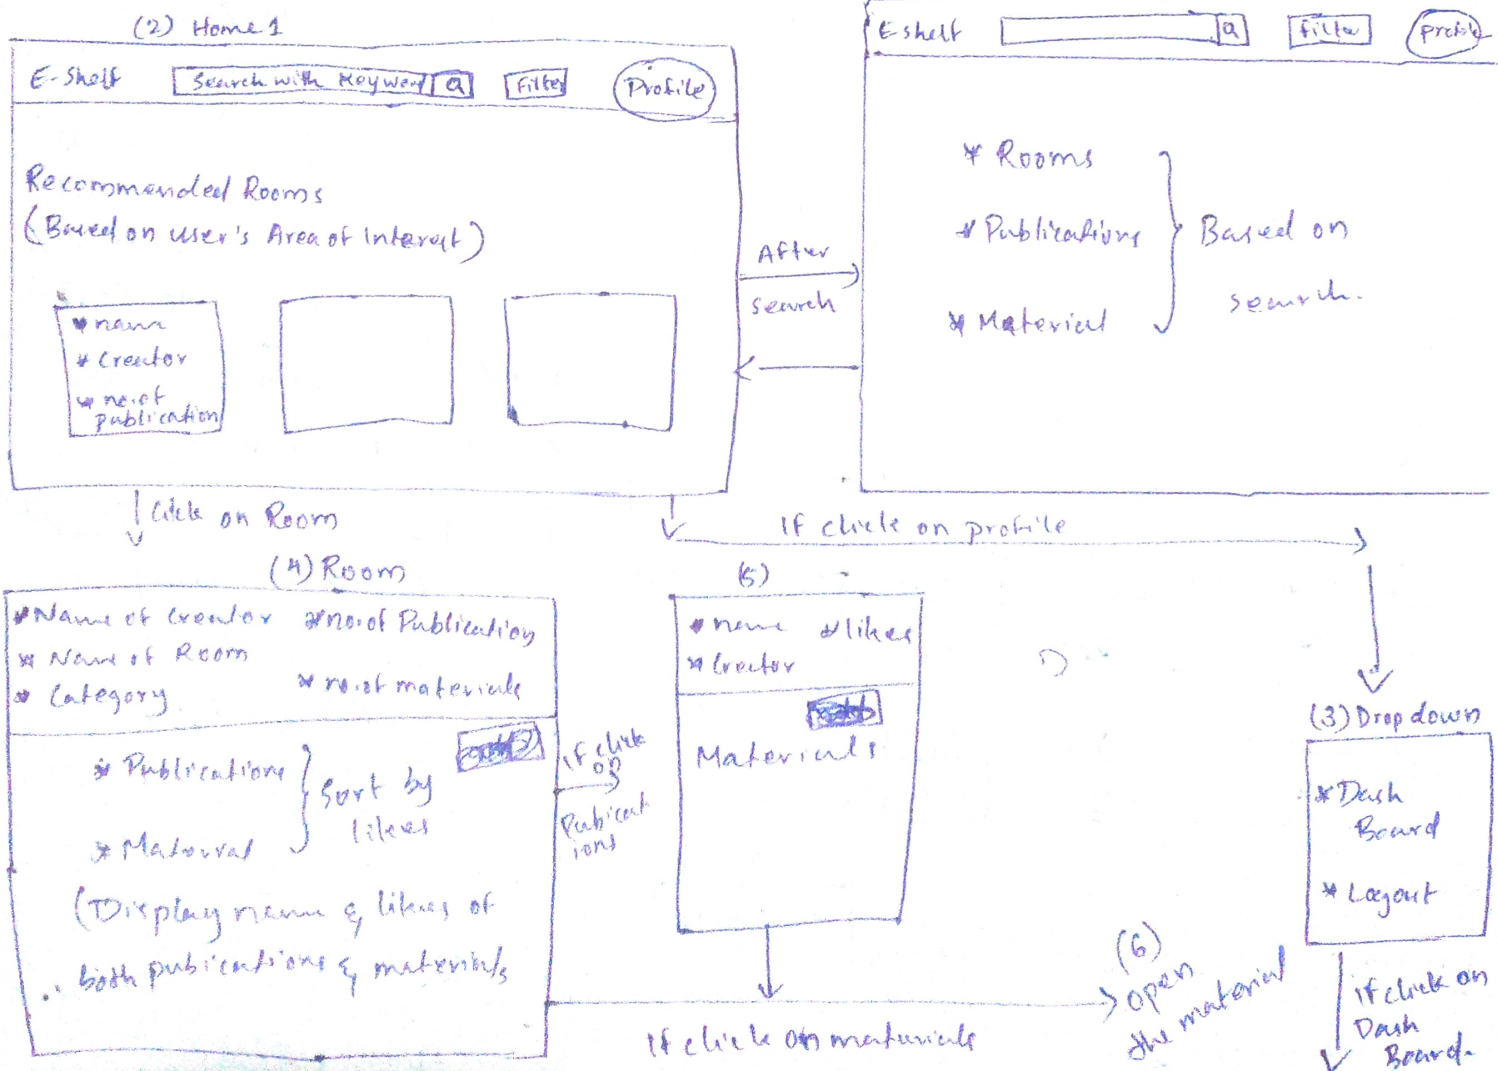 (2) Home 1
E-Shelf Search with Keyword Q Filter Profile
Recommended Rooms
(Based on user's Area of Interest)
* name
* Creator
* no.of
publication
After
search
E-shelf Q Filter Profile
* Rooms
* Publications
* Material
Based on
search.
Click on Room
If click on profile
(4) Room
* Name of Creator * no.of Publication
* Name of Room
* Category * no.of materials
* Publications
* Material
Sort by
likes
(Display name & likes of
both publications & materials
if click
on
Publicat
ions
(5)
* name * likes
* Creator
Materials
If click on materials
(6)
open
the material
(3) Drop down
* Dash
Board
* Logout
if click on
Dash
Board.